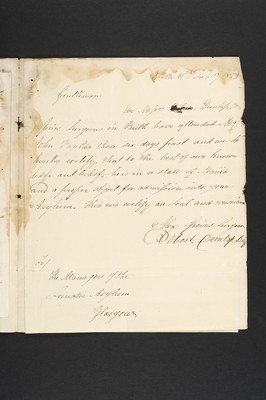 Gentlemen
We Messrs Dunlop &
Spiers Surgeons in Beith have attended Mr
John Faulds these six days past and we do
hereby certify, that to the best of our know
ledge and belief, he is in a state of Mania
and a proper object for admission into your
Asylum. This we certify on Soul and conscience
Alex Spiers Surgeon
Robert Dunlop Surg
To
The Managers of the
Lunatic Asylum
Glasgow